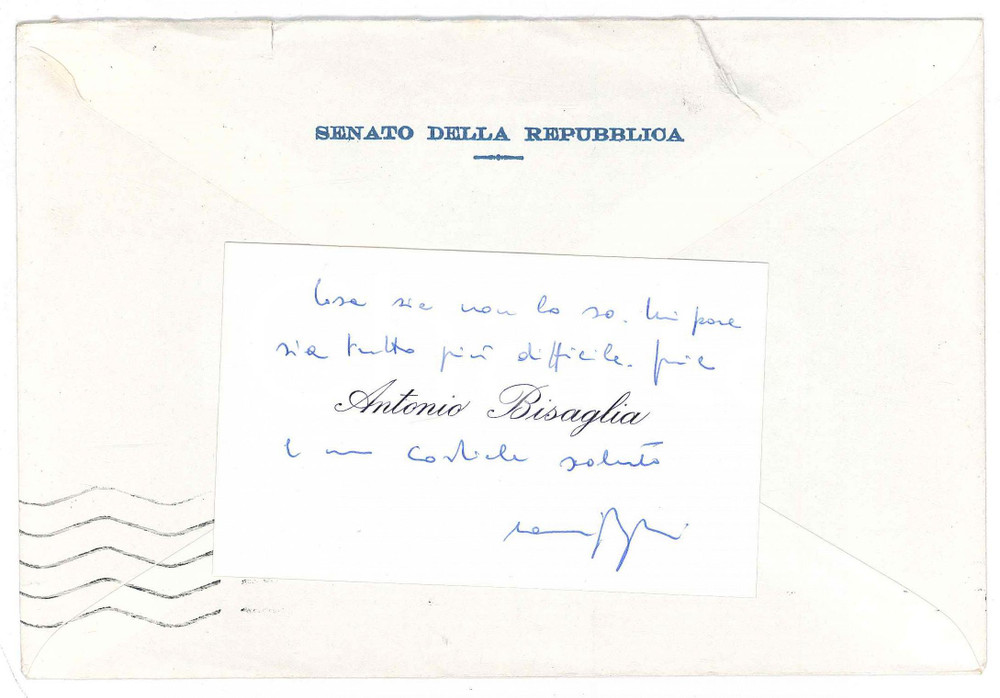 SENATO DELLA REPUBBLICA
Cosa sia non lo so. Mi pare
sia tutto più difficile.
Antonio Bisaglia
E un cordiale saluto